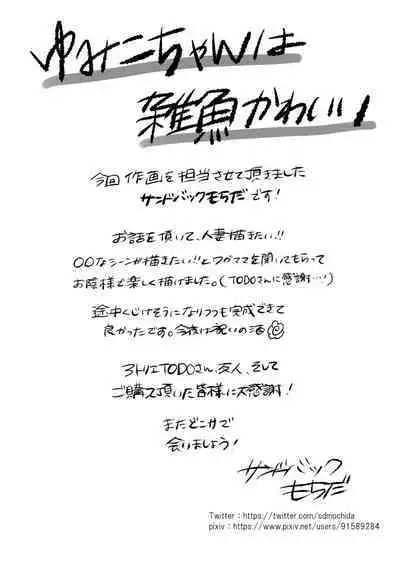 ゆみこちゃんは
雑魚かわいい
今回 作画を担当させて頂きました
サンドバックもちだです!
お話を頂いて、人妻描きたい!!
〇〇なシーンが描きたい!!とワガママを聞いてもらって
お陰様で楽しく描けました。(TODOさんに感謝…!)
途中くじけそうになりつつも完成できて
良かったです。今夜は祝いの酒
アトリエTODOさん、友人、そして
ご購入頂いた皆様に大感謝!
またどこかで
会いましょう!
サンドバック
もちだ
Twitter：https://twitter.com/sdmochida
pixiv：https://www.pixiv.net/users/91589284